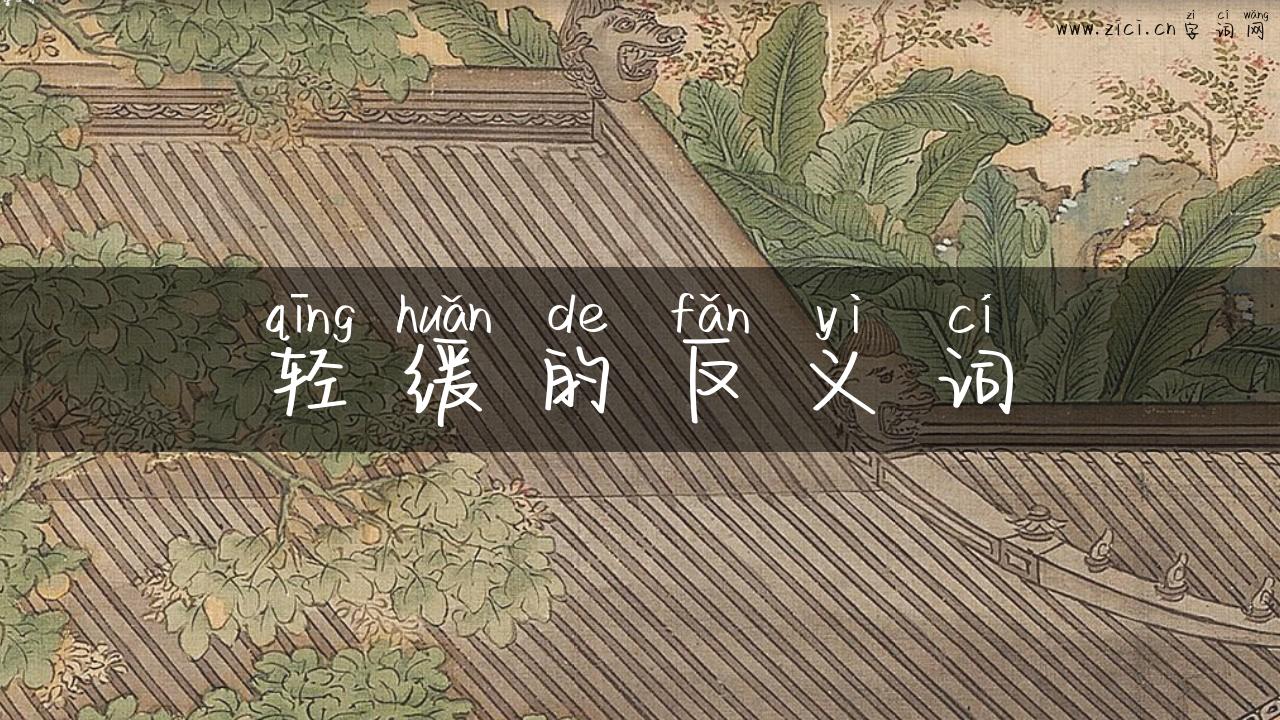 zì cí wǎng
www.zici.cn 字词网
qīng huǎn de fǎn yì cí
轻缓的反义词